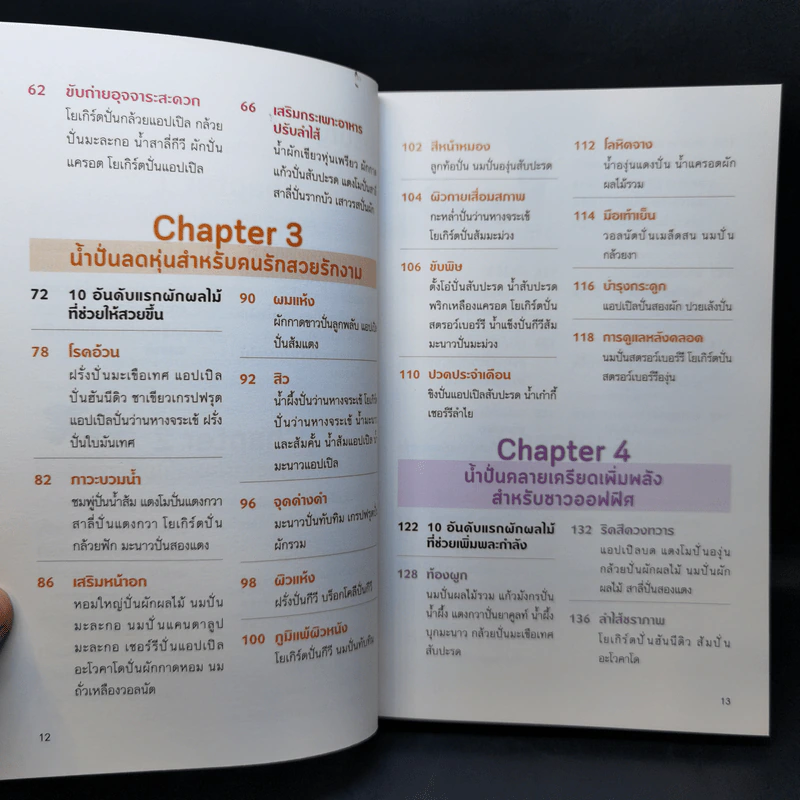 62 ขับถ่ายอุจจาระสะดวก
โยเกิร์ตปั่นกล้วยแอปเปิล กล้วย
ปั่นมะละกอ น้ำสาลี่กีวี ผักปั่น
แครอต โยเกิร์ตปั่นแอปเปิล
66 เสริมกระเพาะอาหาร
ปรับลำไส้
น้ำผักเขียวหุ่นเพรียว
แก้วปั่นสับปะรด แตงโมปั่น
สาลี่ปั่นรากบัว เสาวรสปั่นผัก
Chapter 3
น้ำปั่นลดหุ่นสำหรับคนรักสวยรักงาม
72 10 อันดับแรกผักผลไม้
ที่ช่วยให้สวยขึ้น
78 โรคอ้วน
ฝรั่งปั่นมะเขือเทศ แอปเปิล
ปั่นฮันนีดิว ชาเขียวเกรปฟรุต
แอปเปิลปั่นว่านหางจระเข้ ฝรั่ง
ปั่นใบมันเทศ
82 ภาวะบวมน้ำ
ชมพู่ปั่นน้ำส้ม แตงโมปั่นแตงกวา
สาลี่ปั่นแตงกวา โยเกิร์ตปั่น
กล้วยฟัก มะนาวปั่นสองแตง
86 เสริมหน้าอก
หอมใหญ่ปั่นผักผลไม้ นมปั่น
มะละกอ นมปั่นแคนตาลูป
มะละกอ เชอร์รีปั่นแอปเปิล
อะโวคาโดปั่นผักกาดหอม นม
ถั่วเหลืองวอลนัต
90 ผมแห้ง
ผักกาดขาวปั่นลูกพลับ
ปั่นส้มแตง
92 สิว
น้ำผึ้งปั่นว่านหางจระเข้
ปั่นว่านหางจระเข้
และส้มคั้น น้ำส้มแอปเปิล
มะนาวแอปเปิล
96 จุดด่างดำ
มะนาวปั่นทับทิม
ผักรวม
98 ผิวแห้ง
ฝรั่งปั่นกีวี บร็อกโคลีปั่นกีวี
100 ภูมิแพ้ผิวหนัง
โยเกิร์ตปั่นกีวี นมปั่นทับทิม
12
102 สีหน้าหมอง
ลูกท้อปั่น นมปั่นองุ่นสับปะรด
104 ผิวกายเสื่อมสภาพ
กะหล่ำปั่นว่านหางจระเข้
โยเกิร์ตปั่นส้มมะม่วง
106 ขับพิษ
ตั้งโอ๋ปั่นสับปะรด น้ำสับปะรด
พริกเหลืองแครอต โยเกิร์ตปั่น
สตรอว์เบอร์รี น้ำแข็งปั่นกีวีส้ม
มะนาวปั่นมะม่วง
110 ปวดประจำเดือน
ขิงปั่นแอปเปิลสับปะรด น้ำเก๋ากี้
เชอร์รีลำไย
112 โลหิตจาง
น้ำองุ่นแดงปั่น น้ำแครอตผัก
ผลไม้รวม
114 มือเท้าเย็น
วอลนัตปั่นเมล็ดสน นมปั่น
กล้วยงา
116 บำรุงกระดูก
แอปเปิลปั่นสองผัก ปวยเล้งปั่น
118 การดูแลหลังคลอด
นมปั่นสตรอว์เบอร์รี โยเกิร์ตปั่น
สตรอว์เบอร์รีองุ่น
Chapter 4
น้ำปั่นคลายเครียดเพิ่มพลัง
สำหรับชาวออฟฟิศ
122 10 อันดับแรกผักผลไม้
ที่ช่วยเพิ่มพละกำลัง
128 ท้องผูก
นมปั่นผลไม้รวม แก้วมังกรปั่น
น้ำผึ้ง แตงกวาปั่นยาคูลท์ น้ำผึ้ง
บุกมะนาว กล้วยปั่นมะเขือเทศ
สับปะรด
132 ริดสีดวงทวาร
แอปเปิลบด แตงโมปั่นองุ่น
กล้วยปั่นผักผลไม้ นมปั่นผัก
ผลไม้ สาลี่ปั่นสองแตง
136 ลำไส้ชราภาพ
โยเกิร์ตปั่นฮันนีดิว ส้มปั่น
อะโวคาโด
13